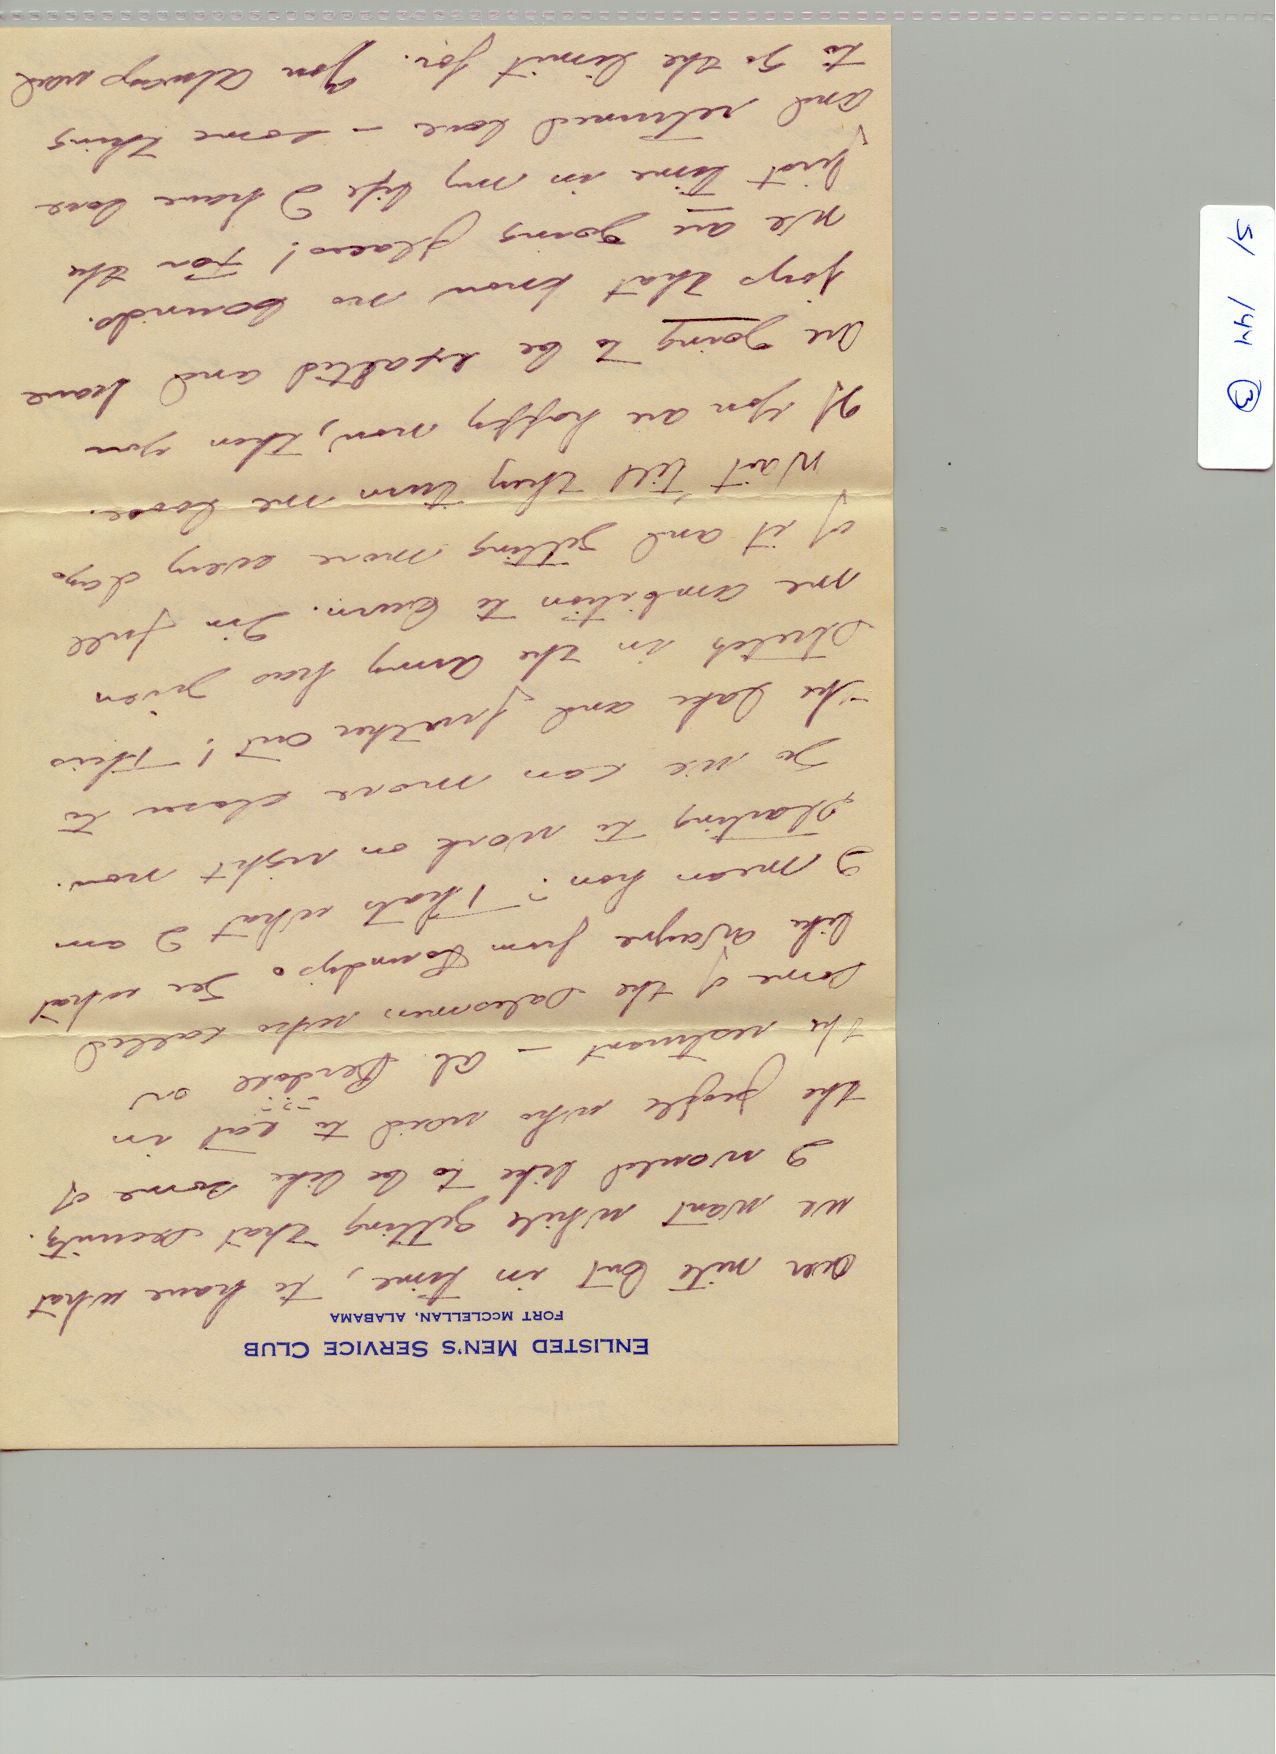 ENLISTED MEN'S SERVICE CLUB
FORT McCLELLAN, ALABAMA
over nite but in time, to have what
we want while getting that security.
I would like to be like some of
the people who used to eat in
the resturant – Al Berdoll or
some of the salesmen who called
like Wayne from Lundys. See what
I mean hon? Thats what I am
starting to work on right now.
So we can move closer to
the lake and further out! This
stretch in the army has given
me ambition to burn. Im full
of it and getting more every day.
Wait till they turn me loose.
If you are happy now, then you
are going to be exalted and have
joys that know no bounds.
We are going places! For the
first time in my life I have love
and returned love – some thing
to go the limit for. You always used
5/ 144 3